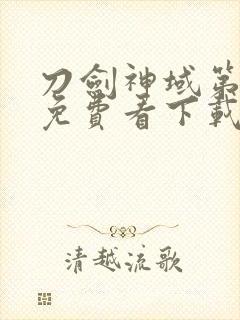 刀劍神域第
免費看下載
清越流歌